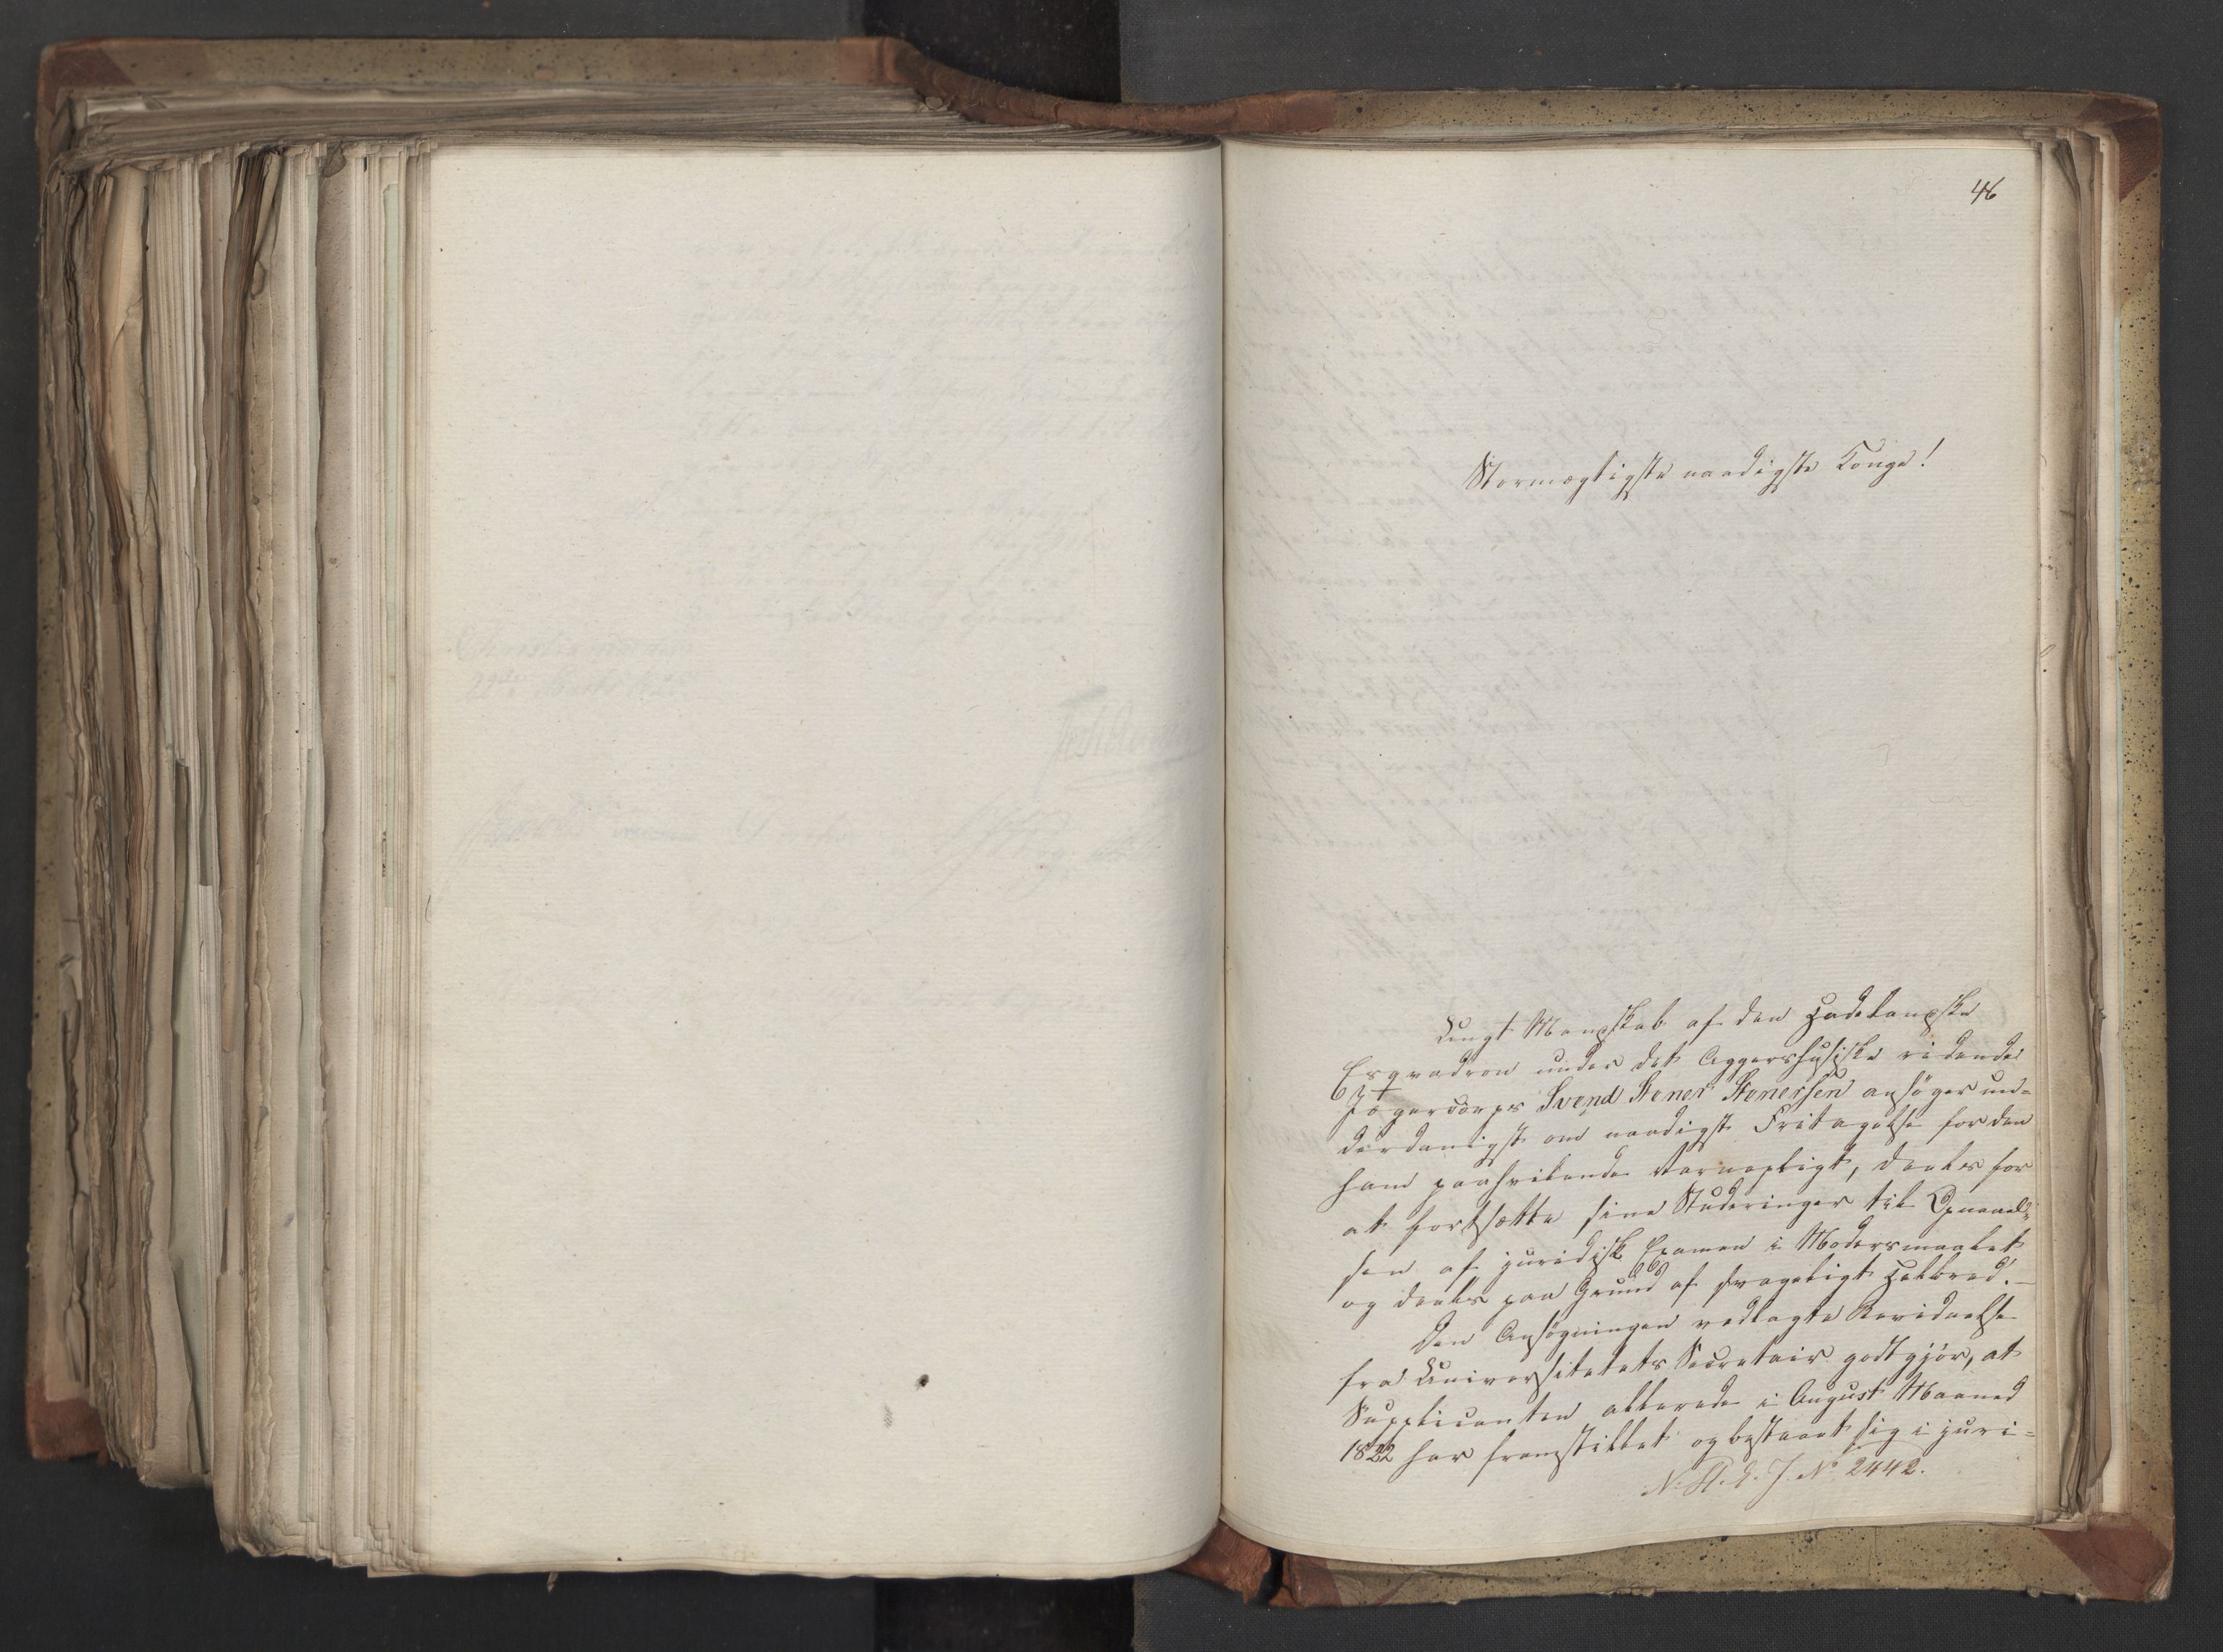 46
Stormægtigste naadigste Konge!
Ungt Mandskab af den Hadelandske
Esqvadron under det Aggershusiske ridende
Jægercorps Svend Stener Stenersen ansøger un=
derdanigst om naadigst Fritagelse for den
ham paahvilende Værnepligt, deels for
at fortsætte sine Studeringer til Opnaael=
sen af juridisk Examen i Modersmaalet
og deels paa Grund af svageligt Helbred. —
Den Ansøgningen vedlagte Bevidnelse
fra Universitetets Secretair godtgjør, at
Supplicanten allerede i August Maaned
1822 har fremstillet og bestaaet sig i juri=
N. St. S. J. No 2442.